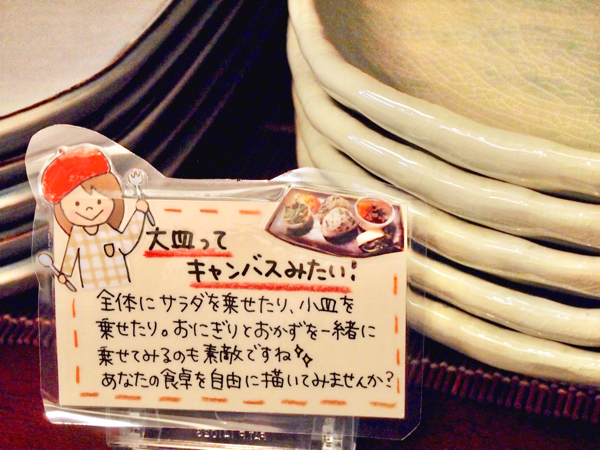 大皿って
キャンバスみたい!
全体にサラダを乗せたり、小皿を
乗せたり。おにぎりとおかずを一緒に
乗せてみるのも素敵ですね
あなたの食卓を自由に描いてみませんか?